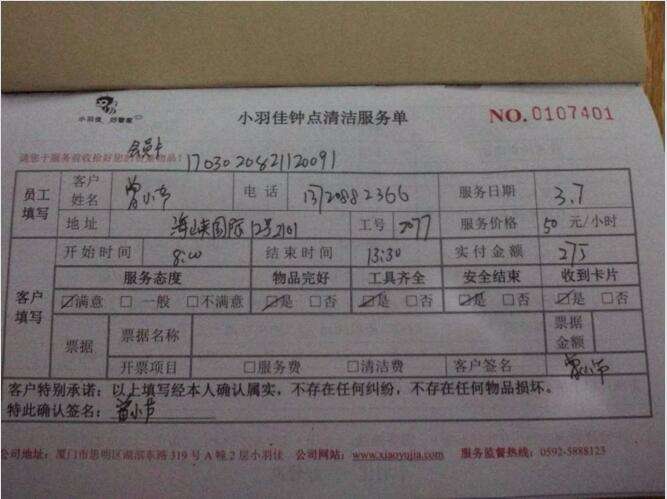 小羽佳 好管家
小羽佳钟点清洁服务单
NO.0107401
会员卡
请您于服务前收拾好您的贵重物品！
17030208211 20091
员工填写
客户姓名 曾小芳 电话 13720882366 服务日期 3.7
地址 海峡国际12号2101 工号 2077 服务价格 50 元/小时
开始时间 8:00 结束时间 13:30 实付金额 275
客户填写
服务态度 物品完好 工具齐全 安全结束 收到卡片
☑满意 □一般 □不满意 ☑是 □否 ☑是 □否 ☑是 □否 ☑是 □否
票据 票据名称 票据金额
开票项目 □服务费 □清洁费 客户签名
客户特别承诺：以上填写经本人确认属实，不存在任何纠纷，不存在任何物品损坏。
特此确认签名：
公司地址：厦门市思明区湖滨东路319号A幢2层小羽佳 公司网站：www.xiaoyujia.com 服务监督热线：0592-5888123